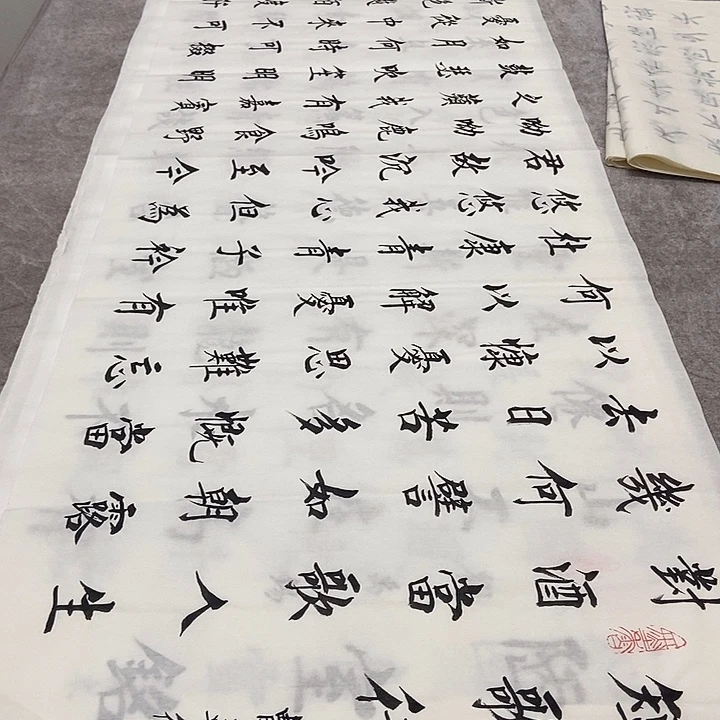 短歌行
對酒當歌人生
幾何譬如朝露
去日苦多慨當
以慷憂思難忘
何以解憂唯有
杜康青青子衿
悠悠我心但為
君故沉吟至今
呦呦鹿鳴食野
之蘋我有嘉賓
鼓瑟吹笙明明
如月何時可掇
憂從中來不可